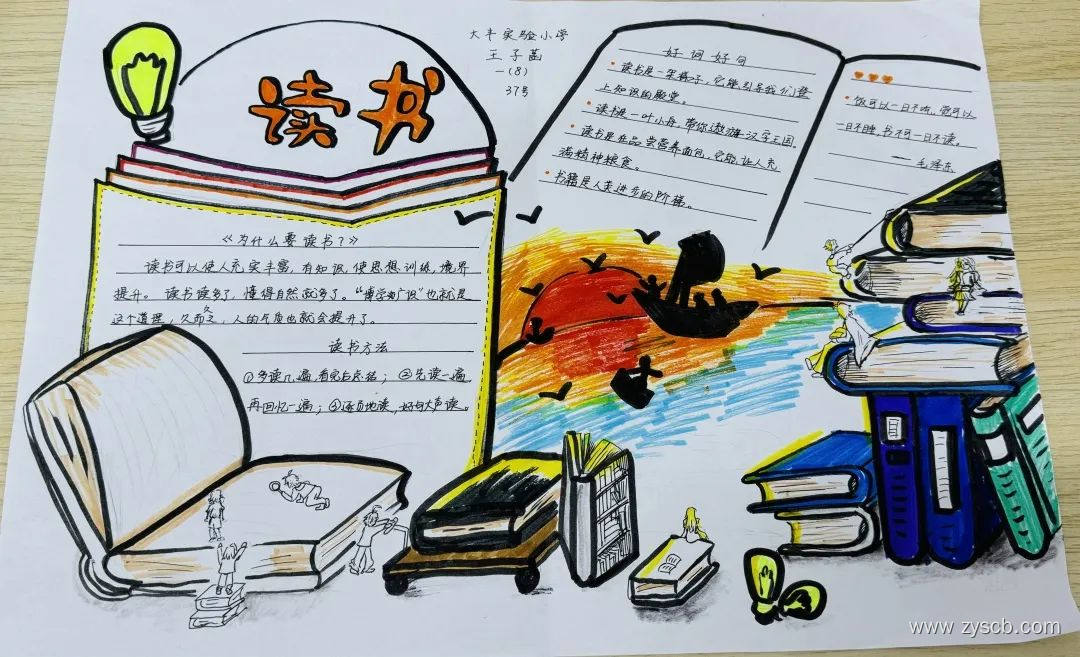 大丰实验小学
王子菡
一(8)
37号
读书
《为什么要读书？》
读书可以使人充实丰富，有知识，使思想训练，境界
提升。读书读多了，懂得自然就多了。“博学与广识”也就是
这个道理，久而久之，人的气质也就会提升了。
读书方法
①多读几遍，看完后总结；②先读一遍
再回忆一遍；③逐页地读，好句大声读。
好词好句
读书是一架梯子，它能引导我们登
上知识的殿堂。
读书是一叶小舟，带你遨游汉字王国。
读书是在品尝营养面包，它能让人充
满精神粮食。
书籍是人类进步的阶梯。
饭可以一日不吃，觉可以
一日不睡，书不可一日不读。
——毛泽东
www.zyscb.com